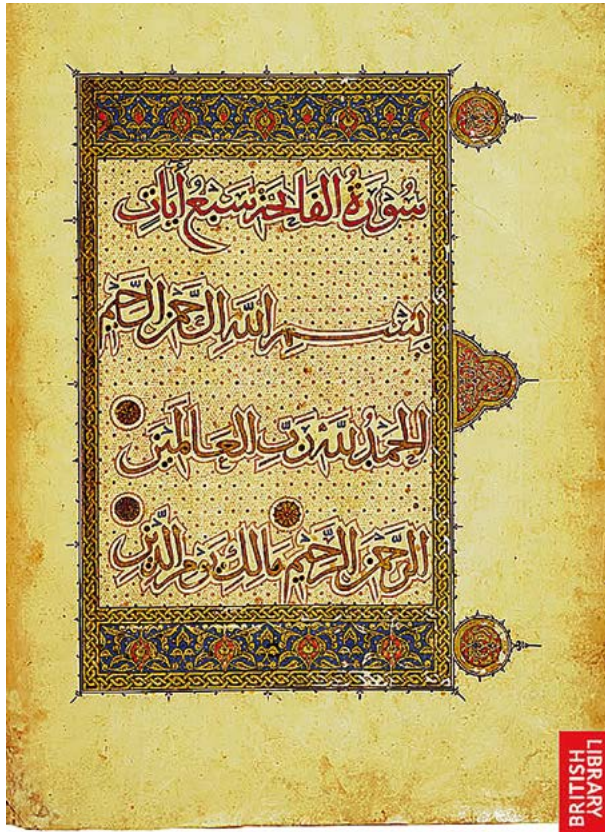 سُورَةُ الفَاتِحَة سَبْعُ أَيَاتٍ
بِسْمِ اللَّهِ الرَّحْمَنِ الرَّحِيمِ
الحَمْدُ لِلَّهِ رَبِّ العَالَمِينَ
الرَّحْمَنِ الرَّحِيمِ مَالِكِ يَوْمِ الدِّينِ
BRITISH
LIBRARY